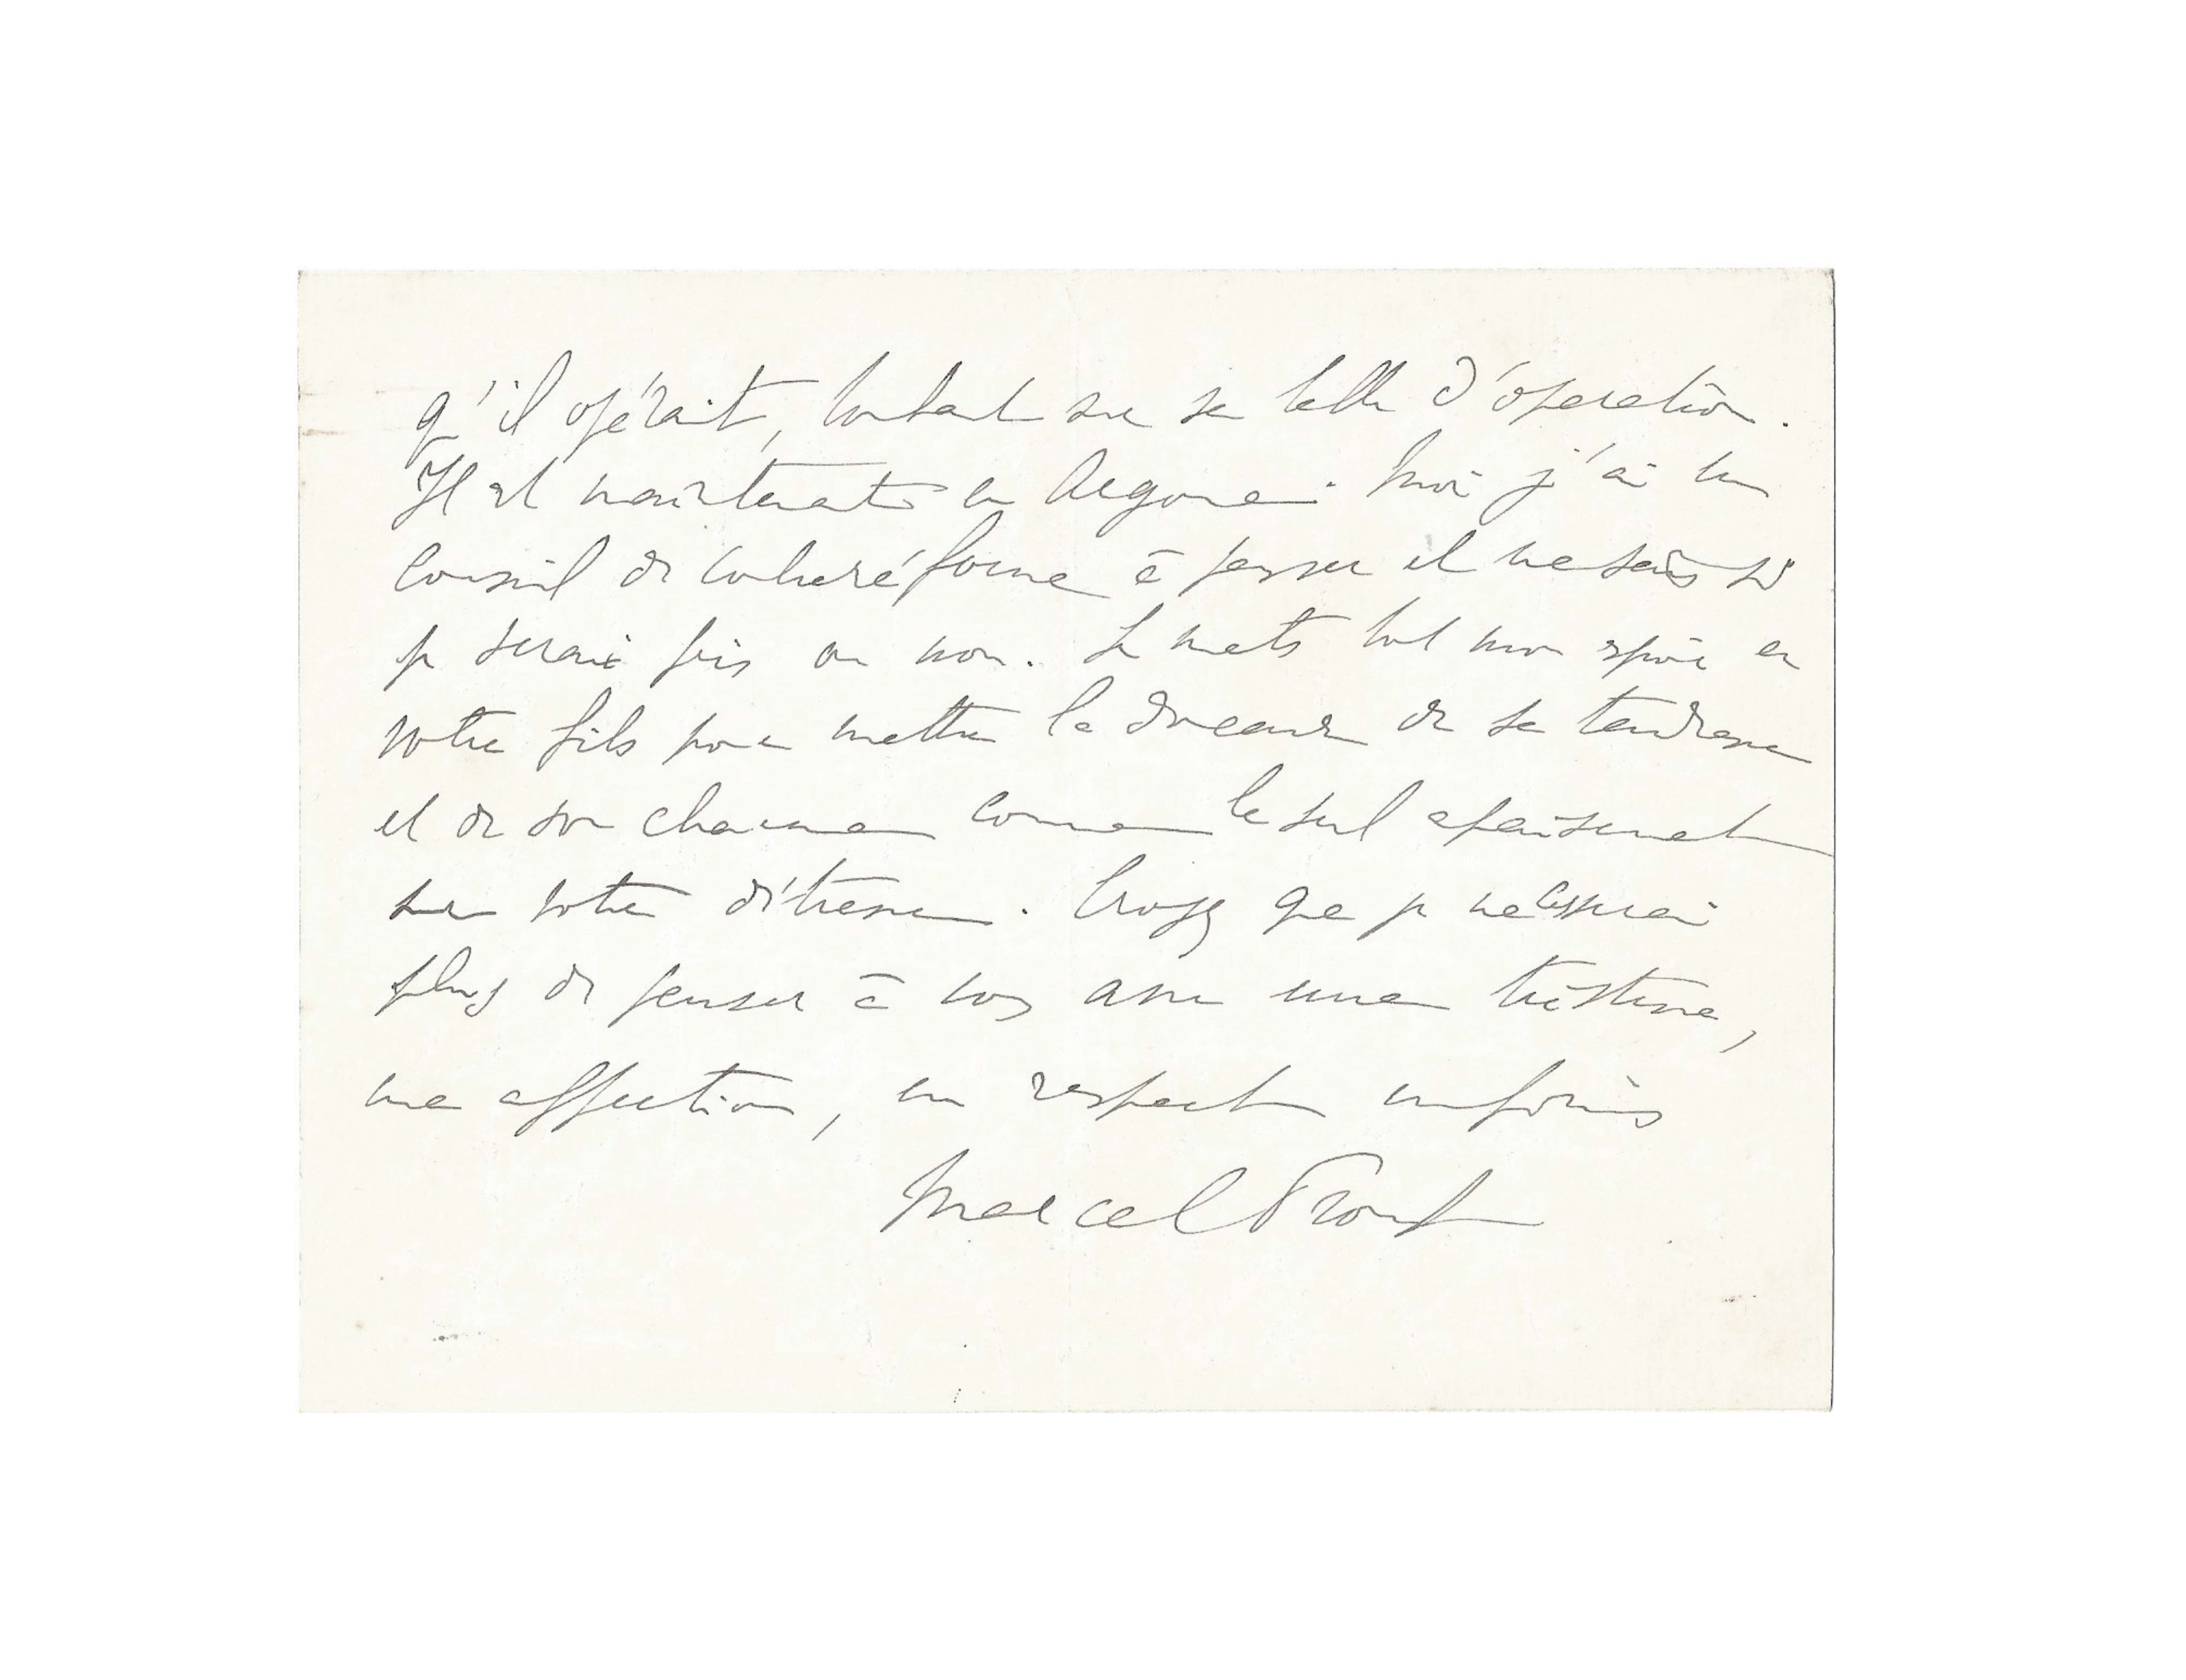 qu'il opérait, tombant sur sa table d'opération.
Il est maintenant en Argonne. Moi j'ai un
conseil de contreréforme à passer et ne sais si
je serai pris ou non. Je mets tout mon espoir en
votre fils pour mettre la douceur de sa tendresse
et de son charme comme le seul apaisement
sur votre détresse. Croyez que je ne cesserai
plus de penser à vous avec une tristesse,
une affection, un respect infinis
Marcel Proust